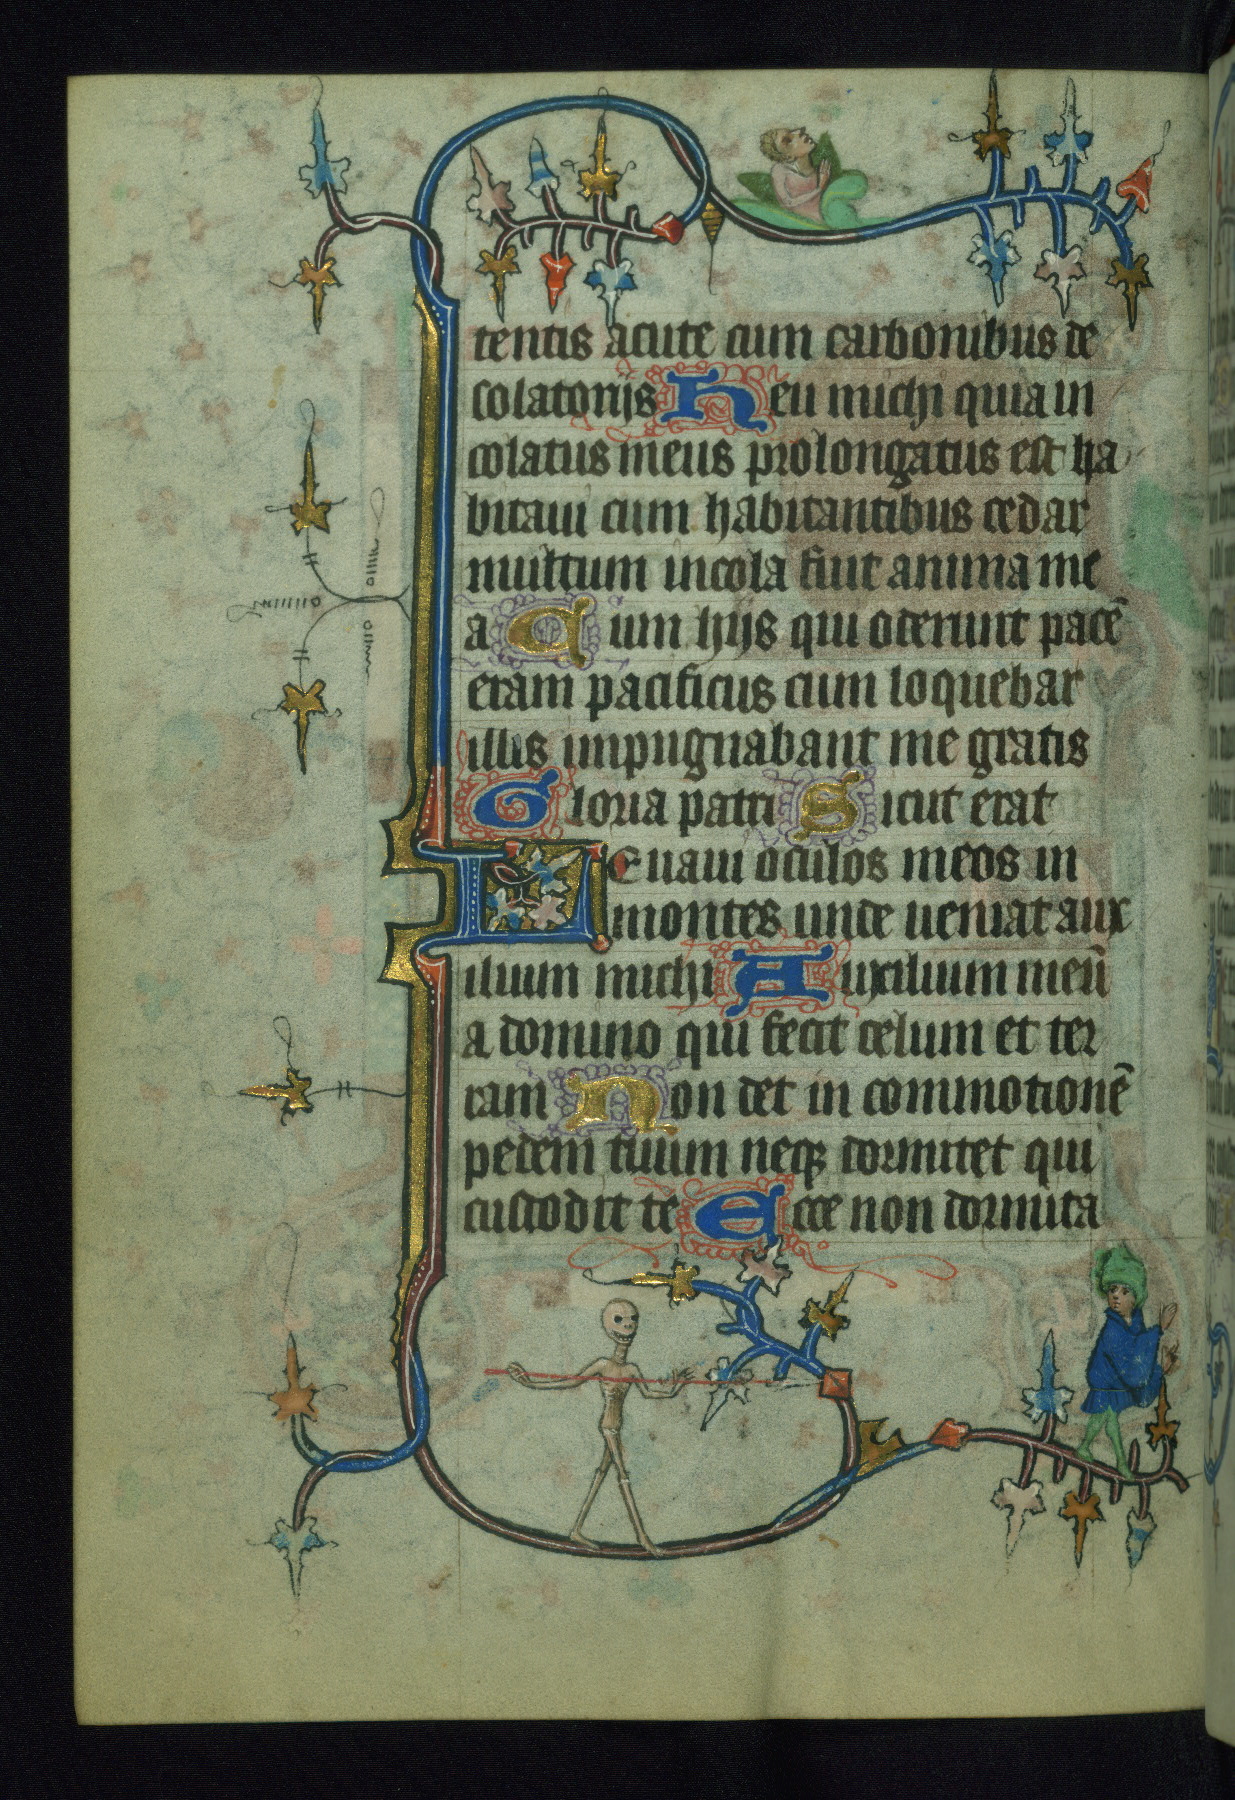 tentis acute cum carbonibus de
solatorijs Heu michi quia in
colatus meus prolongatus est ha
bitaui cum habitantibus cedar
multum incola fuit anima me
a Cum hijs qui oderunt pacē
eram pacificus cum loquebar
illis impugnabant me gratis
Gloria patri Sicut erat
Leuaui oculos meos in
montes unde ueniat aux
ilium michi Auxilium meū
a domino qui fecit celum et ter
ram Non det in commotionē
pedem tuum neqꝫ dormitet qui
custodit te Ecce non dormita